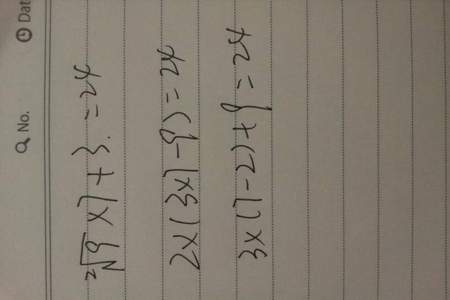 No.
Dat
²√9×7+3.=24
2×(3×7-9)=24
3×(7-2)+9=24